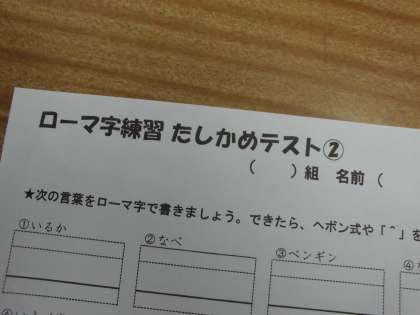 ローマ字練習 たしかめテスト②
（　　）組　名前（
★次の言葉をローマ字で書きましょう。できたら、ヘボン式や「＾」を
①いるか
②なべ
③ペンギン
④